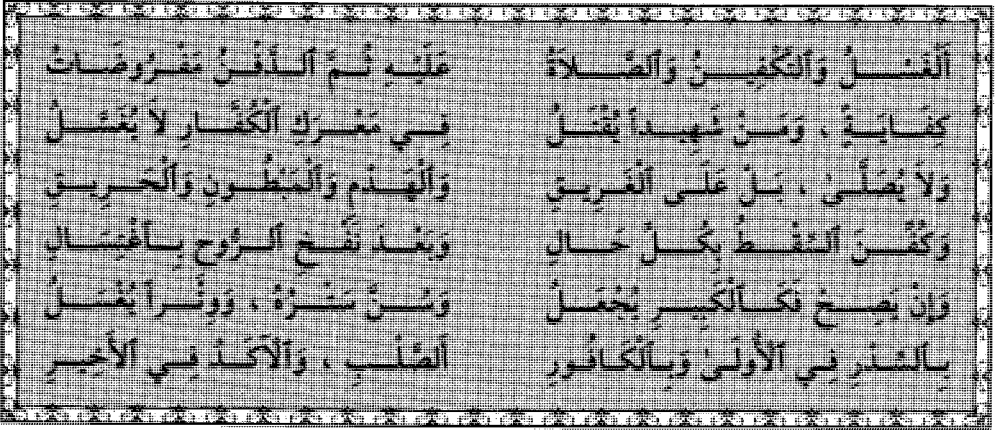 اَلْغَسْلُ وَالتَّكْفِينُ وَالصَّلاَةُ عَلَيْهِ ثُمَّ الدَّفْنُ مَفْرُوضَاتُ
كِفَايَةً ، وَمَنْ شَهِيداً يُقْتَلُ فِي مَعْرَكِ الْكُفَّارِ لاَ يُغَسَّلُ
وَلاَ يُصَلَّىٰ ، بَلْ عَلَى الْغَرِيقِ وَالْهَدْمِ وَالْمَبْطُونِ وَالْحَرِيقِ
وَكُفِّنَ السِّقْطُ بِكُلِّ حَالِ وَبَعْدَ نَفْخِ الرُّوحِ بِاغْتِسَالِ
وَإِنْ يَصِحْ فَكَالْكَبِيرِ يُجْعَلُ وَسُنَّ سَتْرُهُ ، وَوِتْراً يُغْسَلُ
بِالسِّدْرِ فِي الأُولَىٰ وَبِالْكَافُورِ الصُّلْبِ ، وَالآكَدُ فِي الأَخِيرِ